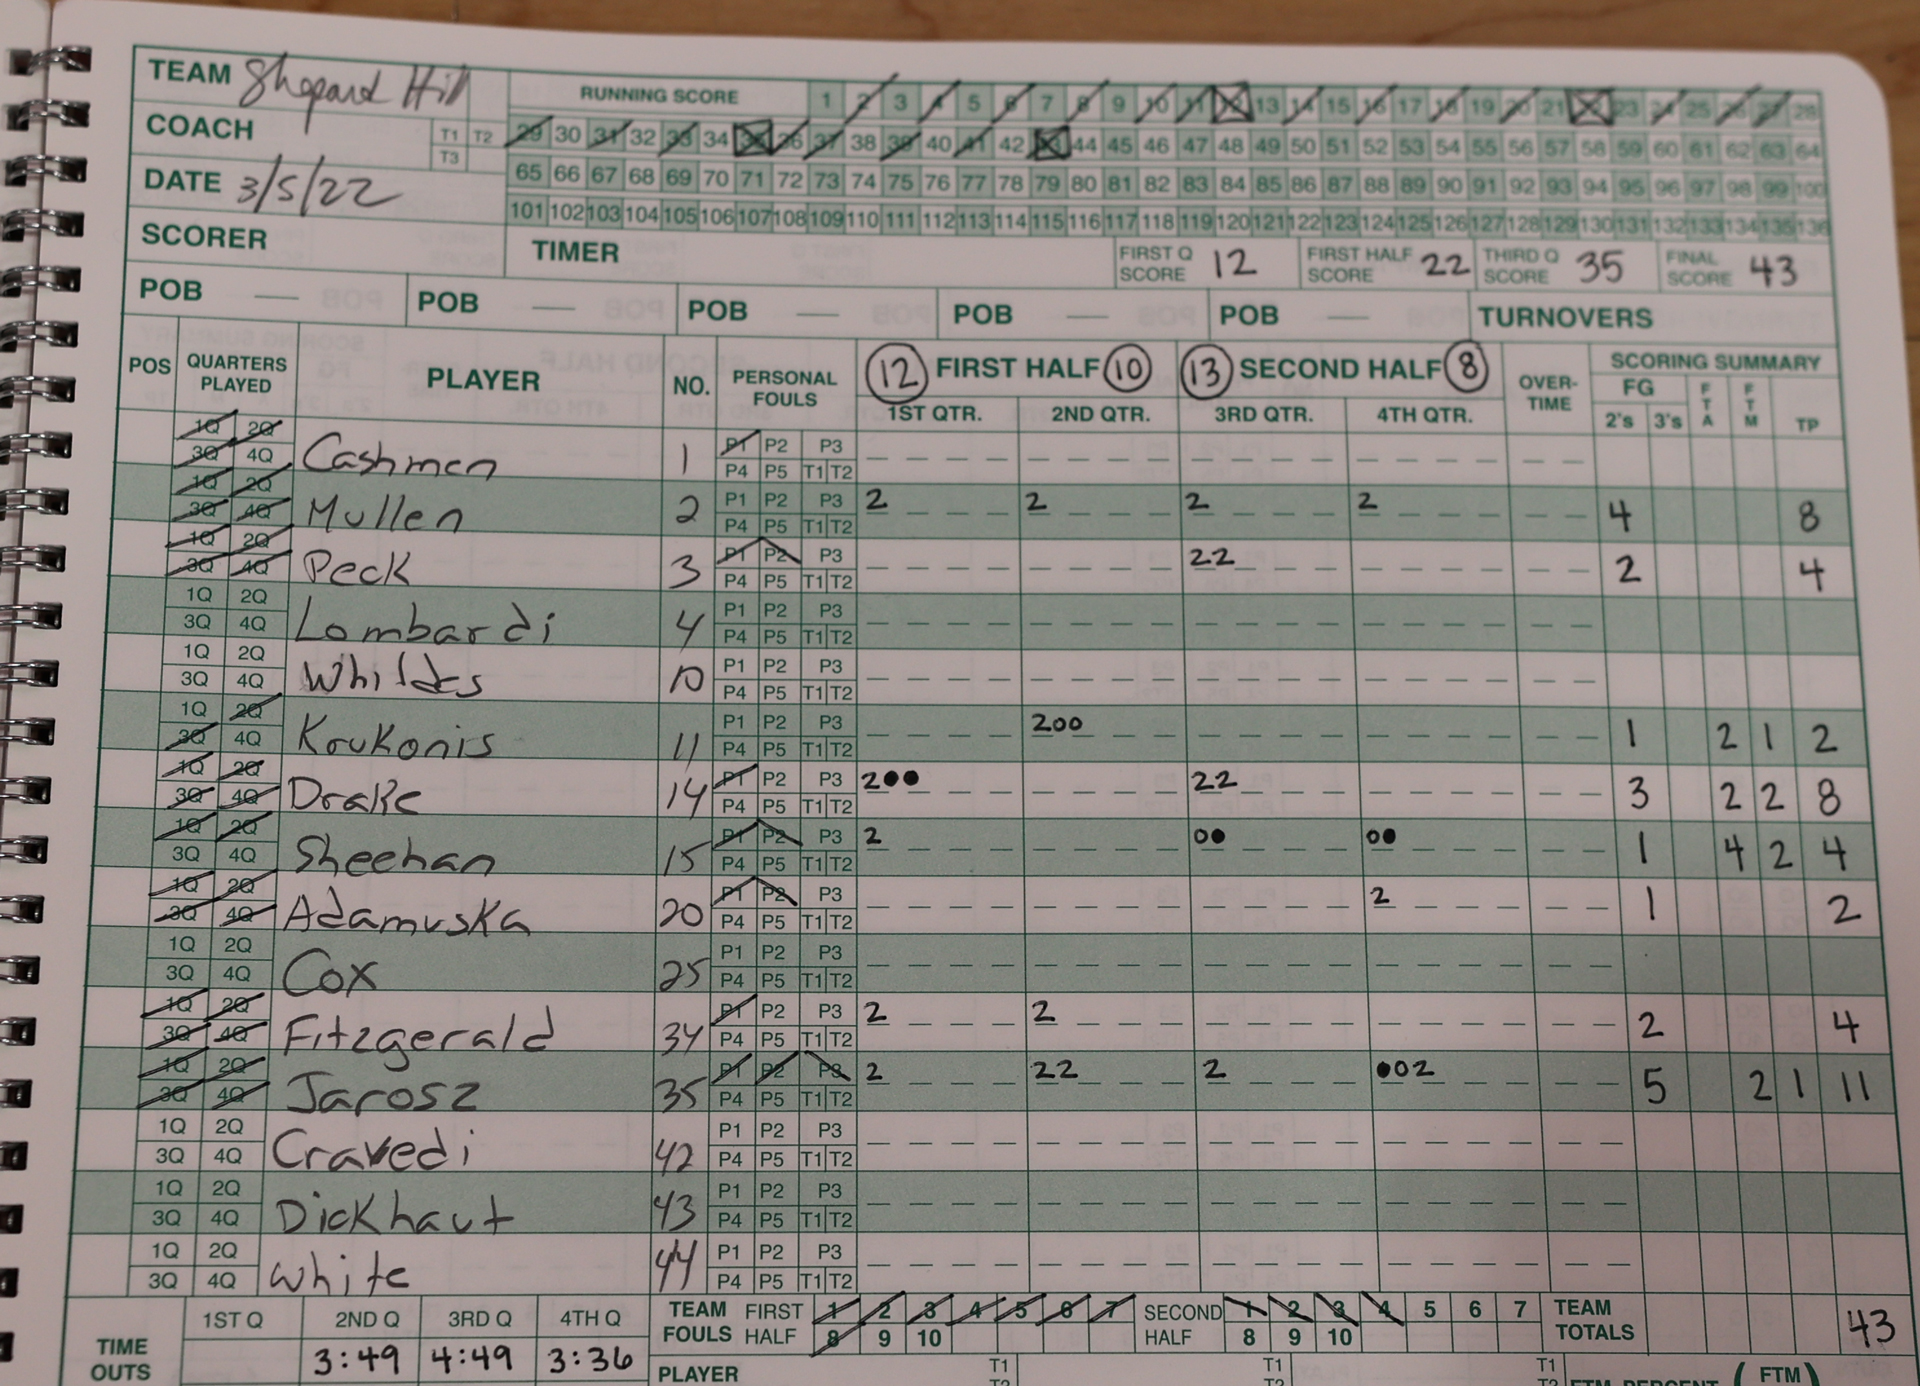 TEAM Shepard Hill
RUNNING SCORE 1 2 3 4 5 6 7 8 9 10 11 12 13 14 15 16 17 18 19 20 21 22 23 24 25 26 27 28
COACH T1 T2 29 30 31 32 33 34 35 36 37 38 39 40 41 42 43 44 45 46 47 48 49 50 51 52 53 54 55 56 57 58 59 60 61 62 63 64
T3
DATE 3/5/22 65 66 67 68 69 70 71 72 73 74 75 76 77 78 79 80 81 82 83 84 85 86 87 88 89 90 91 92 93 94 95 96 97 98 99 100
101 102 103 104 105 106 107 108 109 110 111 112 113 114 115 116 117 118 119 120 121 122 123 124 125 126 127 128 129 130 131 132 133 134 135 136
SCORER TIMER FIRST Q SCORE 12 FIRST HALF SCORE 22 THIRD Q SCORE 35 FINAL SCORE 43
POB — POB — POB — POB — POB — TURNOVERS
POS QUARTERS PLAYED PLAYER NO. PERSONAL FOULS 12 FIRST HALF 10 13 SECOND HALF 8 OVER-TIME SCORING SUMMARY
FG FTA FTM TP
1ST QTR. 2ND QTR. 3RD QTR. 4TH QTR. 2's 3's
1Q 2Q 3Q 4Q Cashmen 1 P1 P2 P3 P4 P5 T1 T2
1Q 2Q 3Q 4Q Mullen 2 P1 P2 P3 P4 P5 T1 T2 2 2 2 2 4 8
1Q 2Q 3Q 4Q Peck 3 P1 P2 P3 P4 P5 T1 T2 22 2 4
1Q 2Q 3Q 4Q Lombardi 4 P1 P2 P3 P4 P5 T1 T2
1Q 2Q 3Q 4Q 10 P1 P2 P3 P4 P5 T1 T2
1Q 2Q 3Q 4Q Krukonis 11 P1 P2 P3 P4 P5 T1 T2 2oo 1 2 1 2
1Q 2Q 3Q 4Q Drake 14 P1 P2 P3 P4 P5 T1 T2 2●● 22 3 2 2 8
1Q 2Q 3Q 4Q Sheehan 15 P1 P2 P3 P4 P5 T1 T2 2 o● o● 1 4 2 4
1Q 2Q 3Q 4Q Adamuska 20 P1 P2 P3 P4 P5 T1 T2 2 1 2
1Q 2Q 3Q 4Q Cox 25 P1 P2 P3 P4 P5 T1 T2
1Q 2Q 3Q 4Q Fitzgerald 34 P1 P2 P3 P4 P5 T1 T2 2 2 2 4
1Q 2Q 3Q 4Q Jarosz 35 P1 P2 P3 P4 P5 T1 T2 2 22 2 ●o2 5 2 1 11
1Q 2Q 3Q 4Q Cravedi 42 P1 P2 P3 P4 P5 T1 T2
1Q 2Q 3Q 4Q Dickhaut 43 P1 P2 P3 P4 P5 T1 T2
1Q 2Q 3Q 4Q White 44 P1 P2 P3 P4 P5 T1 T2
TIME OUTS 1ST Q 2ND Q 3RD Q 4TH Q TEAM FOULS FIRST HALF 1 2 3 4 5 6 7 8 9 10 SECOND HALF 1 2 3 4 5 6 7 8 9 10 TEAM TOTALS 43
3:49 4:49 3:36
PLAYER T1 T1 T1 FTM PERCENT ( FTM )